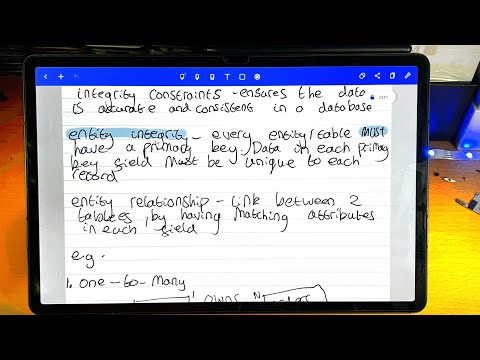 integrity constraints - ensures the data
is accurate and consistent in a database
entity integrity - every entity/table must
have a primary key. Data in each primary
key field must be unique to each
record
entity relationship - link between 2
tables, by having matching attributes
in each field
e.g.
1. one-to-many
1 owns N